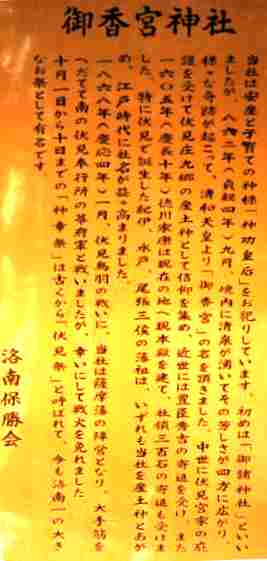 御香宮神社
当社は安産と子育ての神様「神功皇后」をお祀りしています。初めは「御諸神社」といい
ましたが、八六二年(貞観四年)九月、境内に清泉が湧いてその芳しさが四方に広がり、
様々な奇跡が起こって、清和天皇より「御香宮」の名を頂きました。中世に伏見宮家の庇
護を受けて伏見庄九郷の産土神として信仰を集め、近世には豊臣秀吉の寄進を受け、また
一六〇五年(慶長十年)徳川家康は現在の地へ現本殿を建て、社領三百石の寄進も受けま
した。特に伏見で誕生した紀伊、水戸、尾張三候の藩祖は、いずれも当社を産土神とあが
め、江戸時代に社名が益々高まりました。
一八六八年(慶応四年)一月、伏見鳥羽の戦いに、当社は薩摩藩の陣営となり、大手筋を
へだてて南の伏見奉行所の幕府軍と戦いましたが、幸いにして戦火を免れました。
十月一日から十日までの「神幸祭」は古くから「伏見祭」と呼ばれて、今も洛南一の大き
なお祭として有名です。
洛南保勝会